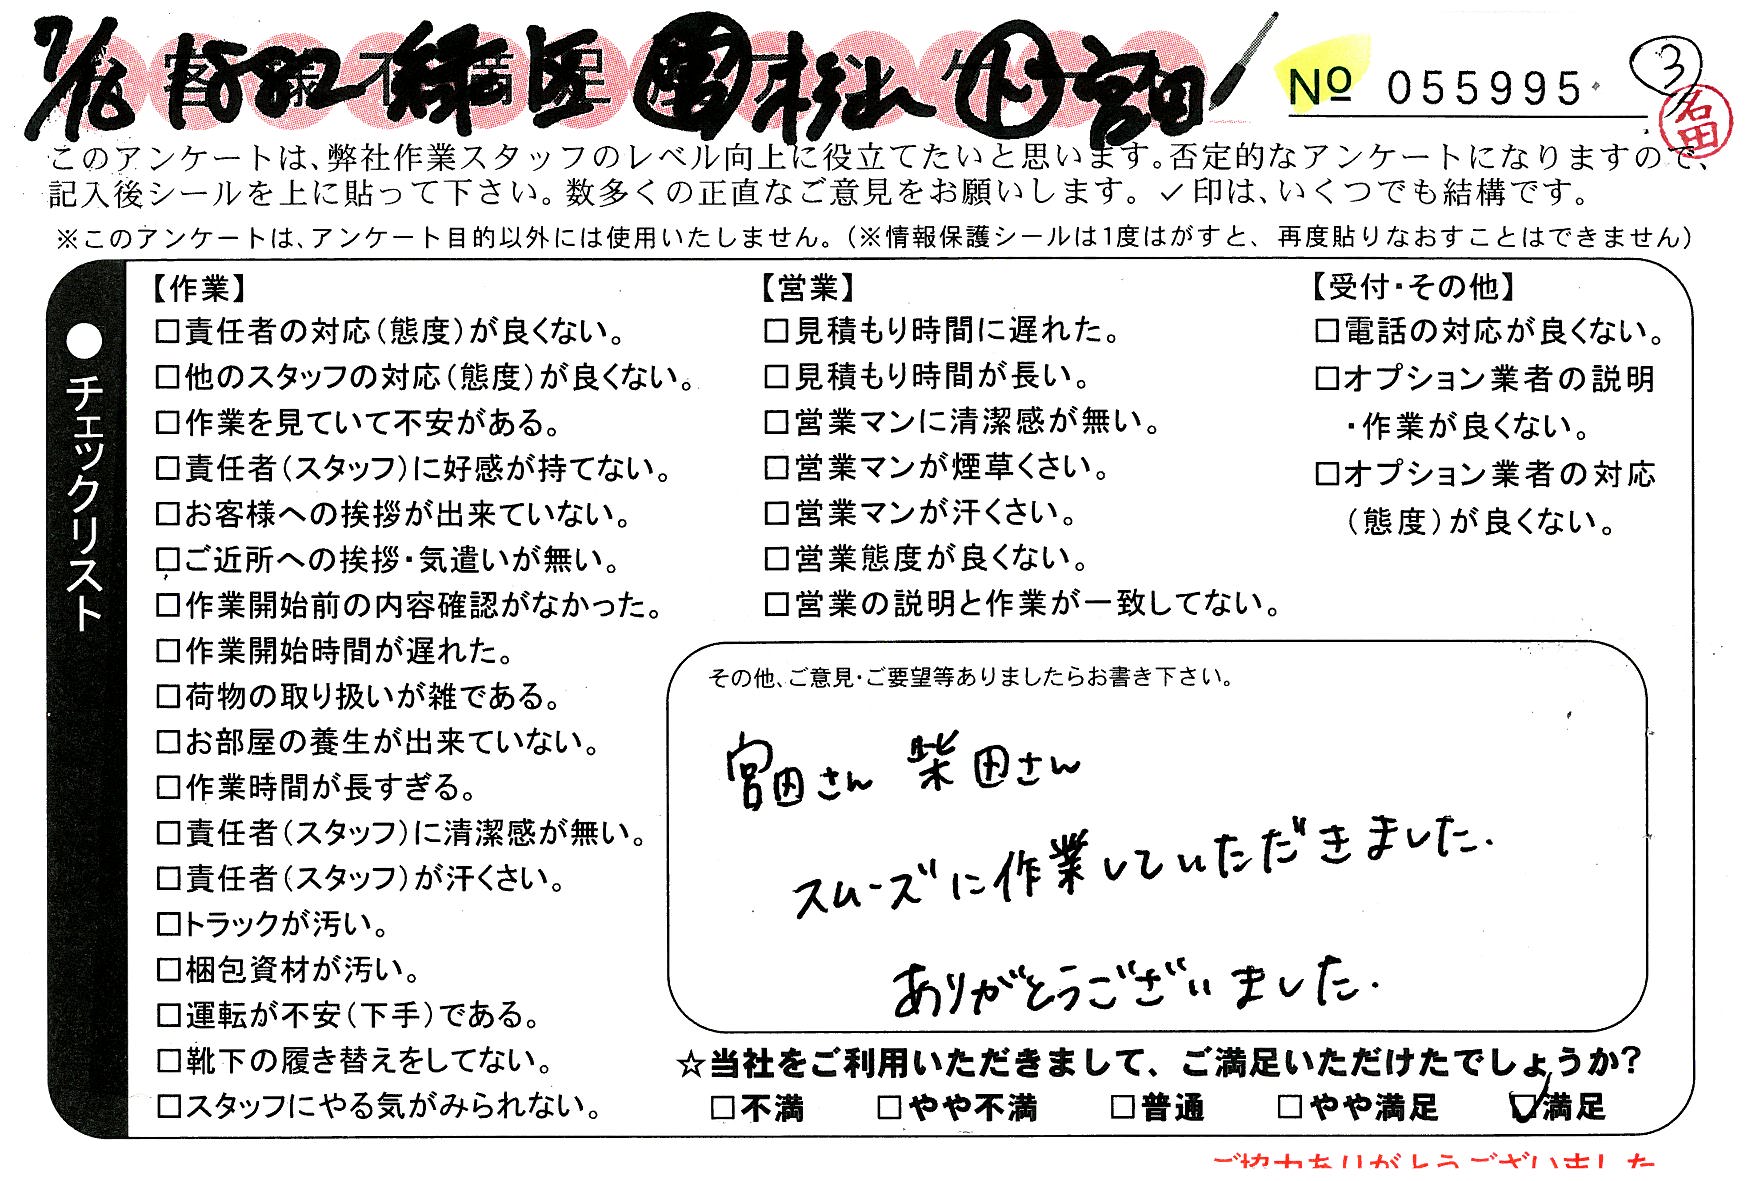 7/16 1882 緑区 営 杉山 ト 宮田
No 055995 3
名田
このアンケートは、弊社作業スタッフのレベル向上に役立てたいと思います。否定的なアンケートになりますので、
記入後シールを上に貼って下さい。数多くの正直なご意見をお願いします。✓印は、いくつでも結構です。
※このアンケートは、アンケート目的以外には使用いたしません。(※情報保護シールは1度はがすと、再度貼りなおすことはできません)
●チェックリスト
【作業】
□責任者の対応(態度)が良くない。
□他のスタッフの対応(態度)が良くない。
□作業を見ていて不安がある。
□責任者(スタッフ)に好感が持てない。
□お客様への挨拶が出来ていない。
□ご近所への挨拶・気遣いが無い。
□作業開始前の内容確認がなかった。
□作業開始時間が遅れた。
□荷物の取り扱いが雑である。
□お部屋の養生が出来ていない。
□作業時間が長すぎる。
□責任者(スタッフ)に清潔感が無い。
□責任者(スタッフ)が汗くさい。
□トラックが汚い。
□梱包資材が汚い。
□運転が不安(下手)である。
□靴下の履き替えをしてない。
□スタッフにやる気がみられない。
【営業】
□見積もり時間に遅れた。
□見積もり時間が長い。
□営業マンに清潔感が無い。
□営業マンが煙草くさい。
□営業マンが汗くさい。
□営業態度が良くない。
□営業の説明と作業が一致してない。
【受付・その他】
□電話の対応が良くない。
□オプション業者の説明
・作業が良くない。
□オプション業者の対応
(態度)が良くない。
その他、ご意見・ご要望等ありましたらお書き下さい。
宮田さん 柴田さん
スムーズに作業していただきました.
ありがとうございました.
☆当社をご利用いただきまして、ご満足いただけたでしょうか?
□不満 □やや不満 □普通 □やや満足 ☑満足
ご協力ありがとうございました